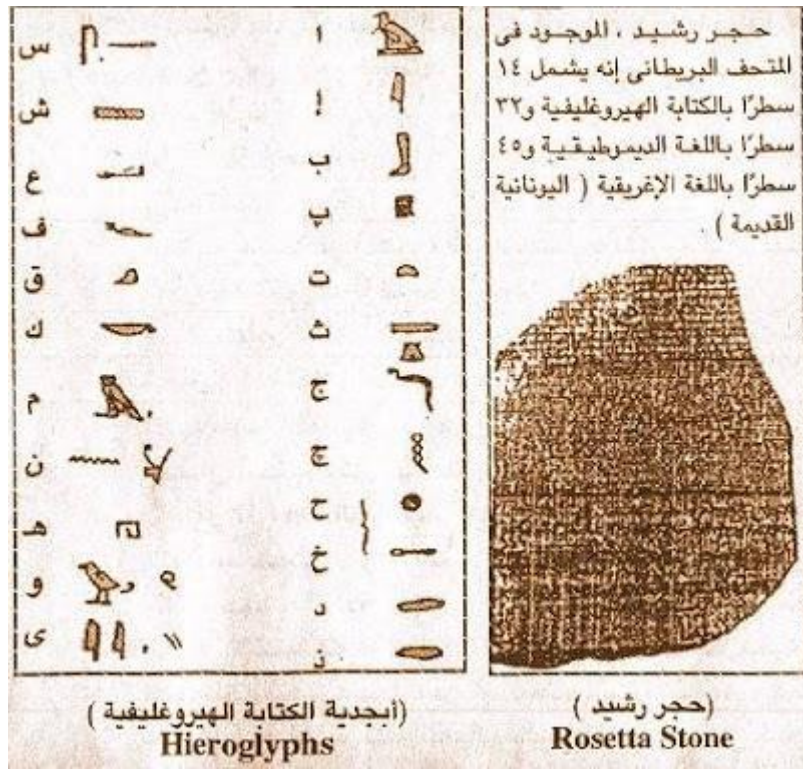 حجر رشيد ، الموجود فى
المتحف البريطانى إنه يشمل ١٤
سطرًا بالكتابة الهيروغليفية و٣٢
سطرًا باللغة الديموطيقية و٤٥
سطرًا باللغة الإغريقية ( اليونانية
القديمة ) .
(حجر رشيد )
Rosetta Stone
ا
إ
ب
پ
ت
ث
ج
چ
ح
خ
د
ذ
س
ش
ع
ف
ق
ك
م
ن
هـ
و
ى
(أبجدية الكتابة الهيروغليفية )
Hieroglyphs